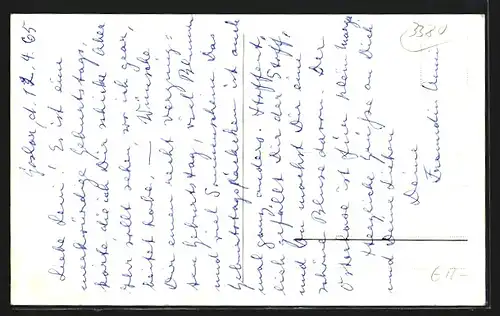 Goslar, d. 12.4.65
Liebe Leni! Es ist eine
merkwürdige Geburtstags,
karte die ich Dir schicke. Aber
Ihr sollt sehen, wo ich gear,
beitet habe. — Wünsche
Dir einen recht vergnüg,
ten Geburtstag, viel Blumen
und viel Sonnenschein. Das
Geburtstagspäckchen ist auch
mal ganz anders. Hoffent,
lich gefällt Dir der Stoff,
und Du machst Dir eine
schöne Bluse davon. Der
Osterhase ist für klein
Herzliche Grüße an Dich
und Deine Lieben
Deine
Freundin
3380